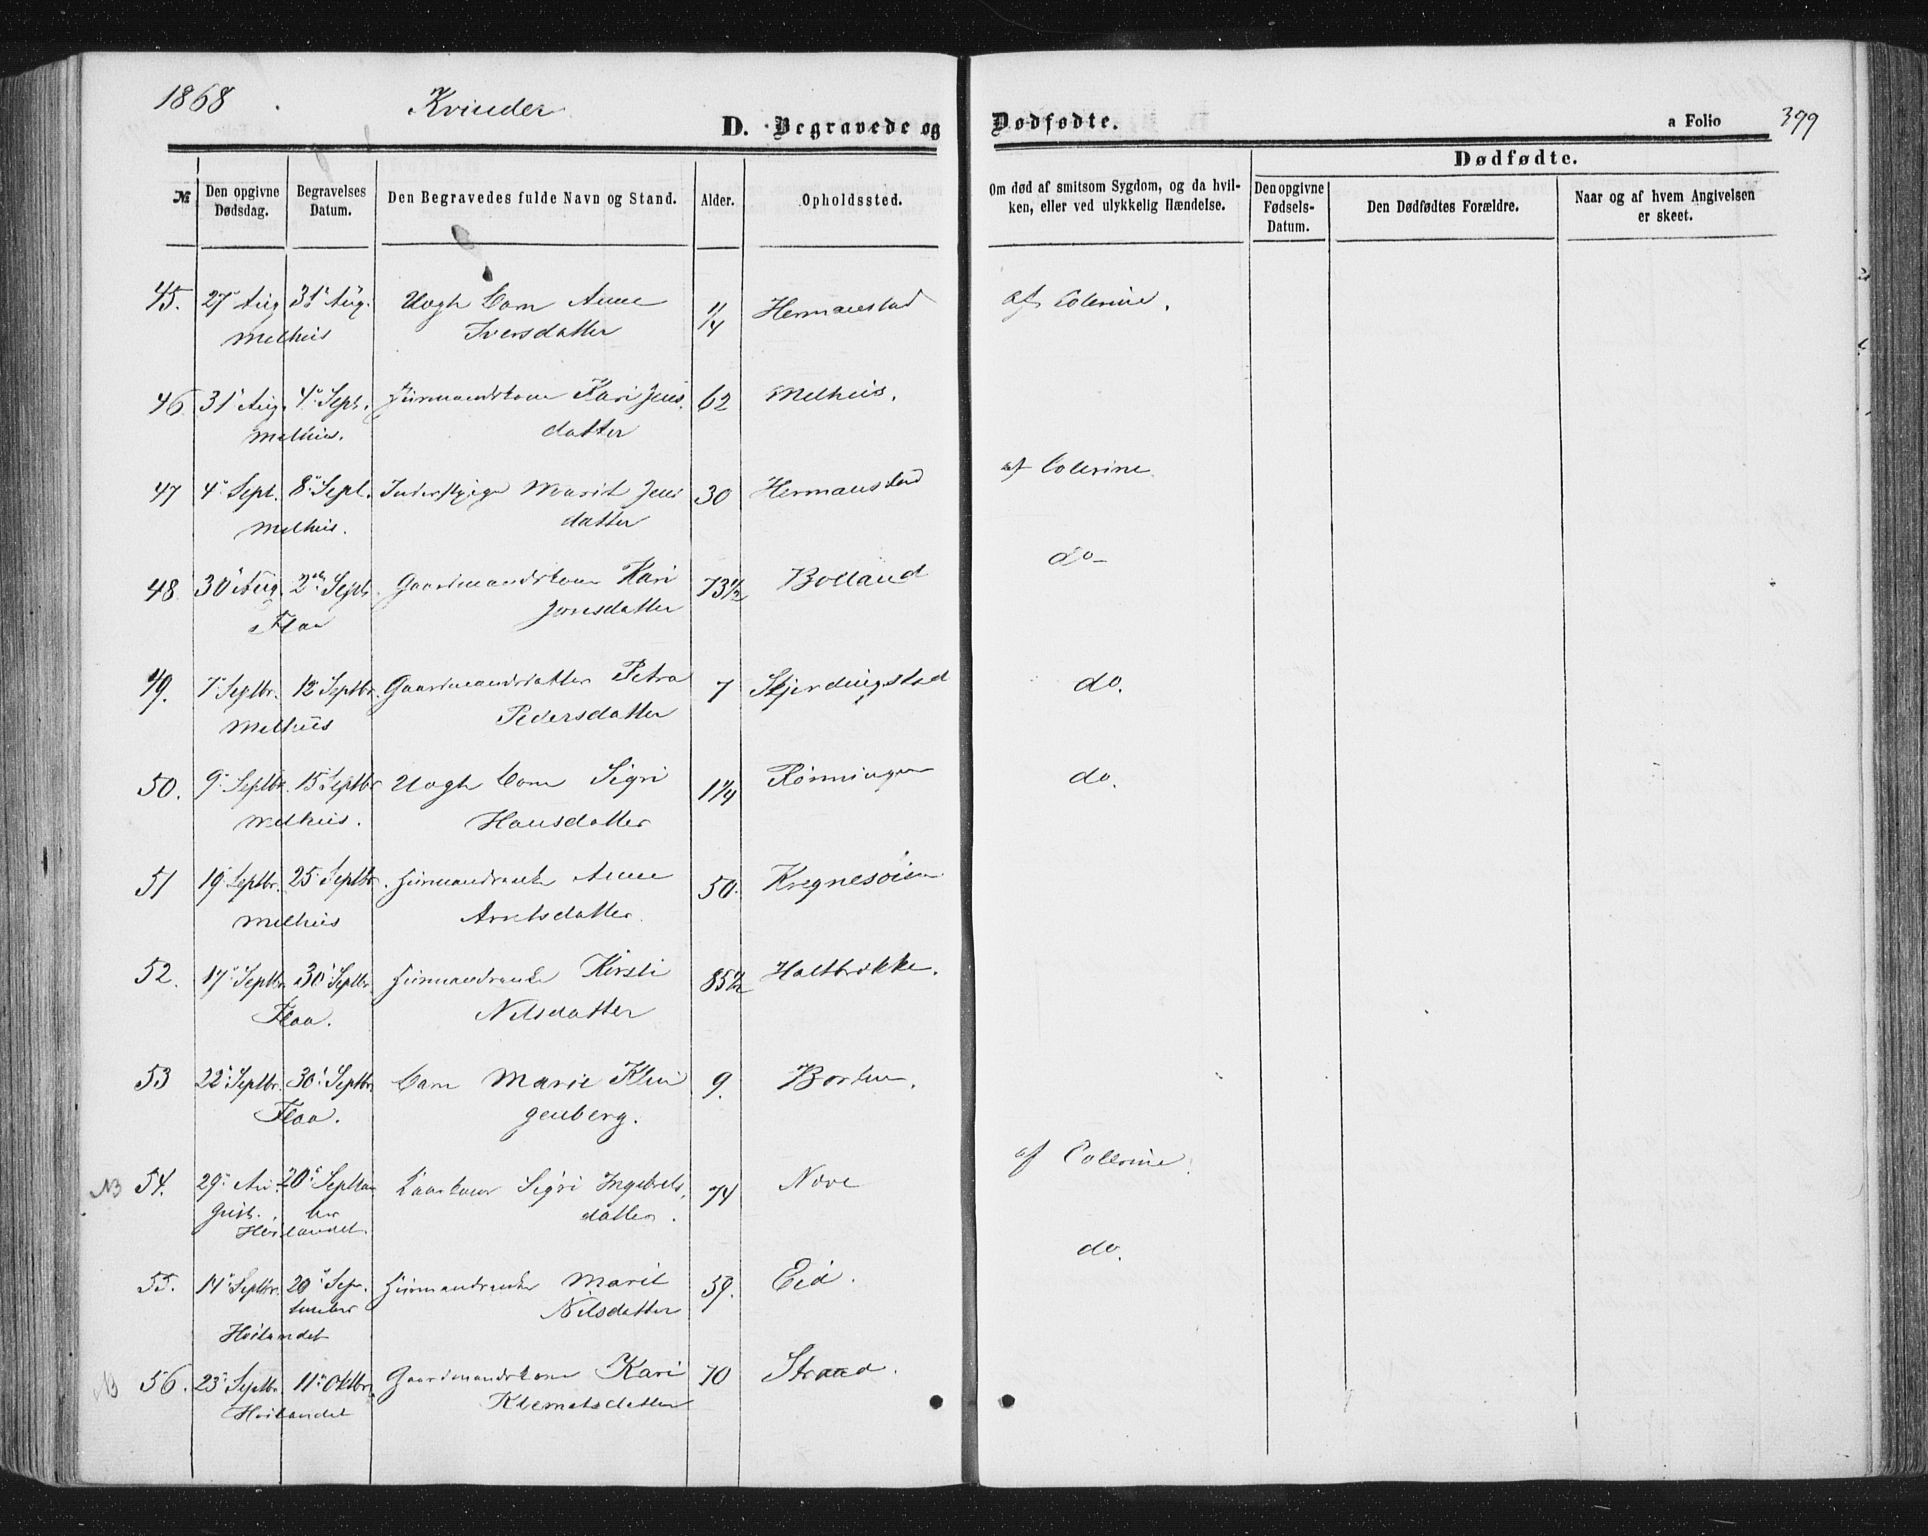 1868 Kvinder
D. Begravede og Dødfødte. a Folio 399
Dødfødte.
№ Den opgivne Dødsdag. Begravelses Datum. Den Begravedes fulde Navn og Stand. Alder. Opholdssted. Om død af smitsom Sygdom, og da hvilken, eller ved ulykkelig Hændelse. Den opgivne Fødsels-Datum. Den Dødfødtes Forældre. Naar og af hvem Angivelsen er skeet.
45. 27 Aug 31 Aug. Uegt Barn Anne 1/4 Hermanstad af Colerine.
Melhus Iversdatter
46 31 Aug. 4 Sept. Huusmandskone Kari Jens 62 Melhus.
Melhus. datter
47 4 Sept. 8 Sept. Inderstpige Marit Jens 30 Hermanstad af Colerine
Melhus. datter
48 30 Aug. 2den Sept. Gaardmandskone Kari 73 1/2 Bolland do
Flaa Jonsdatter
49. 7 Septbr. 12 Septbr. Gaardmandsdatter Petra 7 Skjerdingstad do.
Melhus Pedersdatter
50. 9 Septbr. 15 Septbr Uegt Barn Sigri 1 1/4 Rønningen do.
Melhus. Hansdatter
51 19 Septbr. 25 Septbr. Huusmandsenke Anne 50. Kregnesøien
Melhus Arntsdatter.
52. 17 Septbr. 30 Septbr. Huusmandsenke Kirsti 85 1/2 Haltbrække.
Flaa. Nilsdatter
53 22 Septbr. 30 Septbr. Barn Marie Klin 9. Borten.
Flaa. genberg.
NB 54. 29 Au- 20 Septem Kaarkone Sigri Ingebrets 74 Nove af Colerine.
gust. ber datter.
Høilandet.
55. 14 Septbr. 20 Sep- Huusmandsenke Marit 59. Eid. do.
tember Nilsdatter
Høilandet
NB 56. 23 Septbr. 11 Oktbr. Gaardmandskone Kari 70 Straad.
Høilandet Klemetsdatter